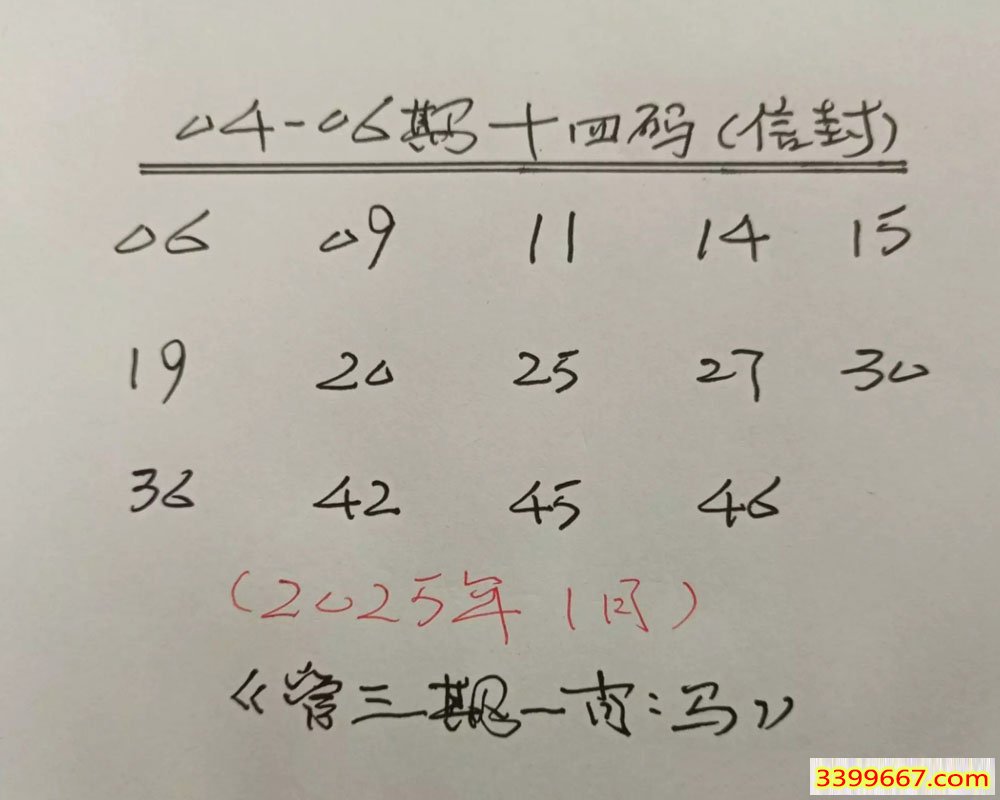 04-06期十四码(信封)
06 09 11 14 15
19 20 25 27 30
36 42 45 46
(2025年1月)
《管三期一肖:马》
3399667.com